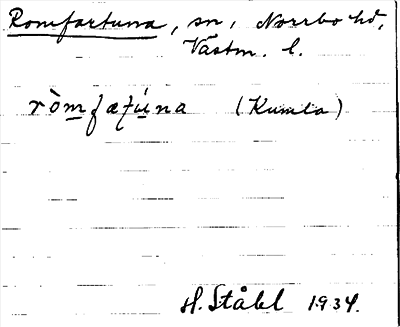 Romfartuna, sn, Norrbo hd,
Västm. l.
ròmfæʈúna (Kumla)
H. Ståhl 1934.